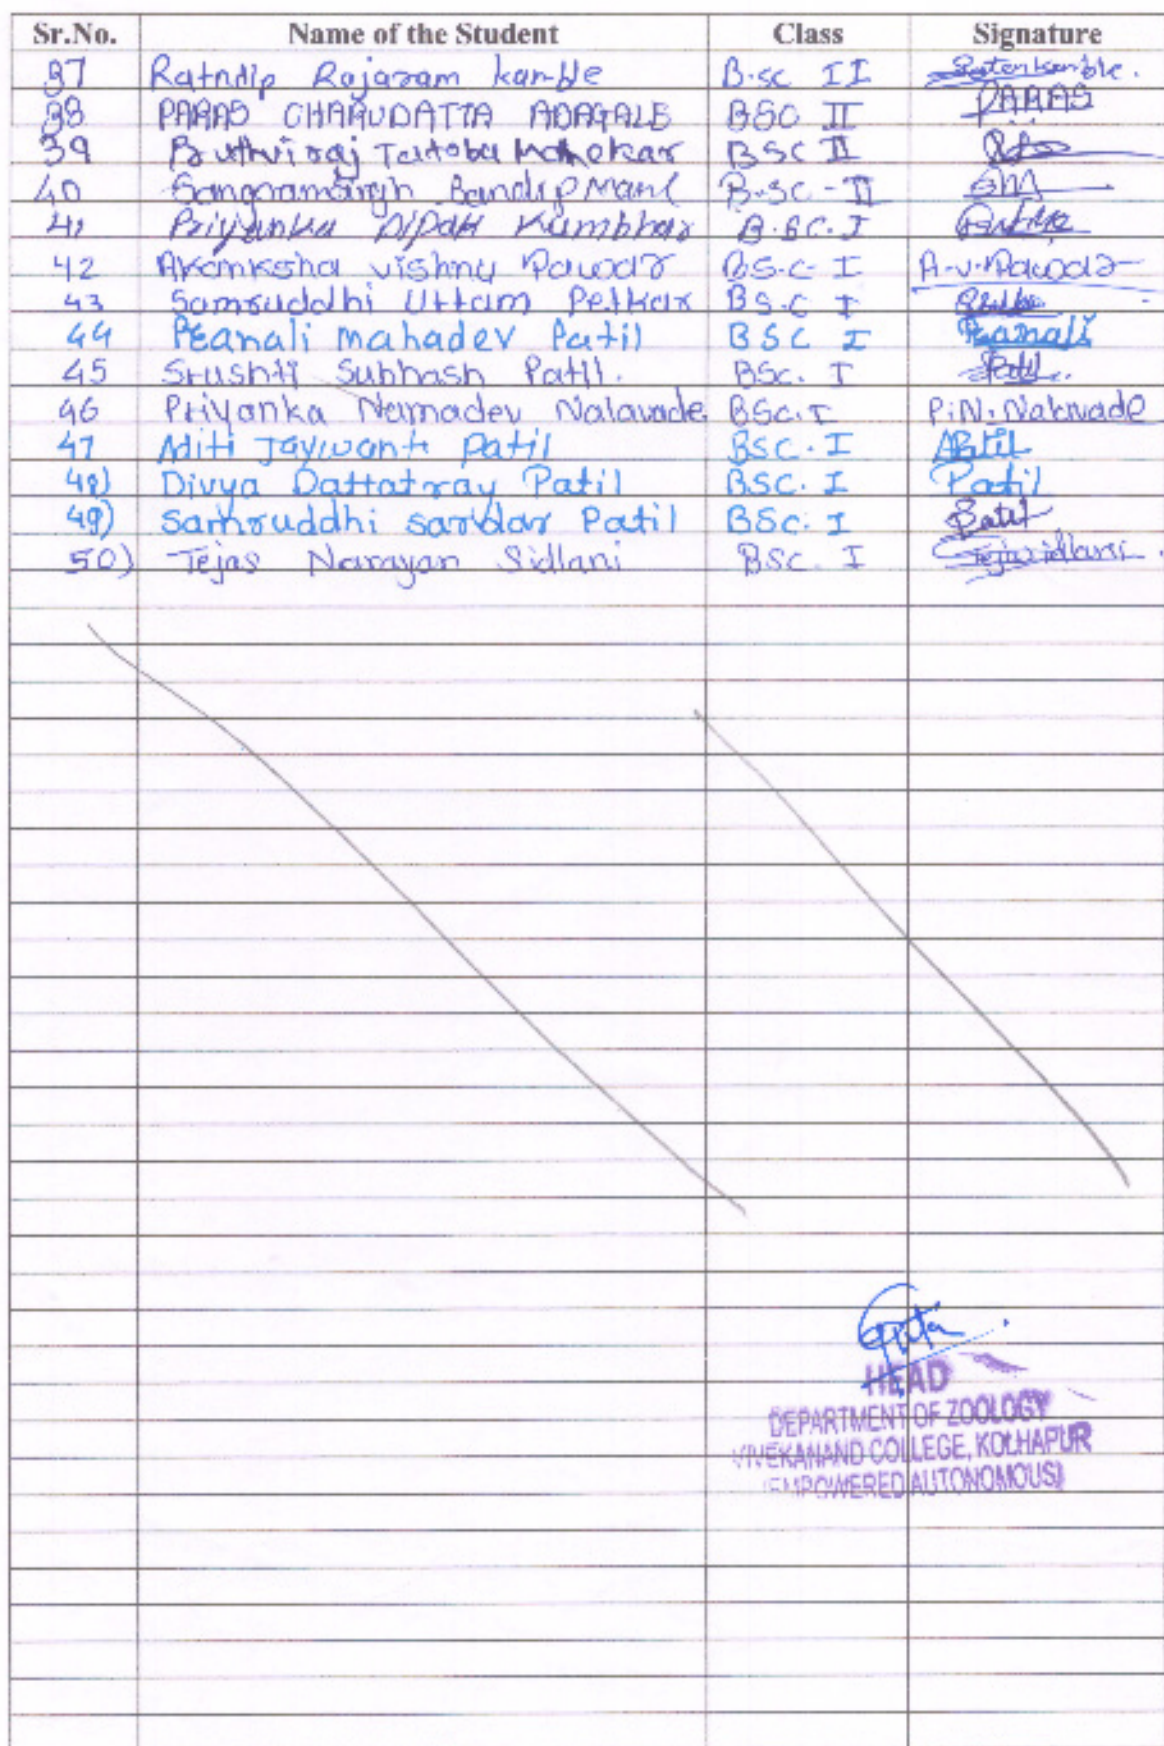 Sr.No. Name of the Student Class Signature
37 Ratndip Rajaram kamble B.sc II
38 PARAS CHARUDATTA ADAGALE BSC II PARAS
39 Pruthviraj Tatoba BSC II
40 Sangramsingh Mane B.sc - II SM
41 Priyanka Dipak Kumbhar B.SC. I
42 Akanksha vishnu Pawar BS.C- I A.v.Pawar
43 Samruddhi Uttam Petkar BS.C I
44 Pranali mahadev Patil BSC I Pranali
45 Srushti Subhash Patil. BSc. I Patil.
46 Priyanka Namadev Nalavade BSc. I P.N. Nalavade
47 Aditi Jaywant Patil BSC. I APatil
48) Divya Dattatray Patil BSC. I Patil
49) Samruddhi sardar Patil BSc. I Patil
50) Tejas Narayan Sidlani BSC. I Tejassidlani.
HEAD
DEPARTMENT OF ZOOLOGY
VIVEKANAND COLLEGE, KOLHAPUR
(EMPOWERED AUTONOMOUS)